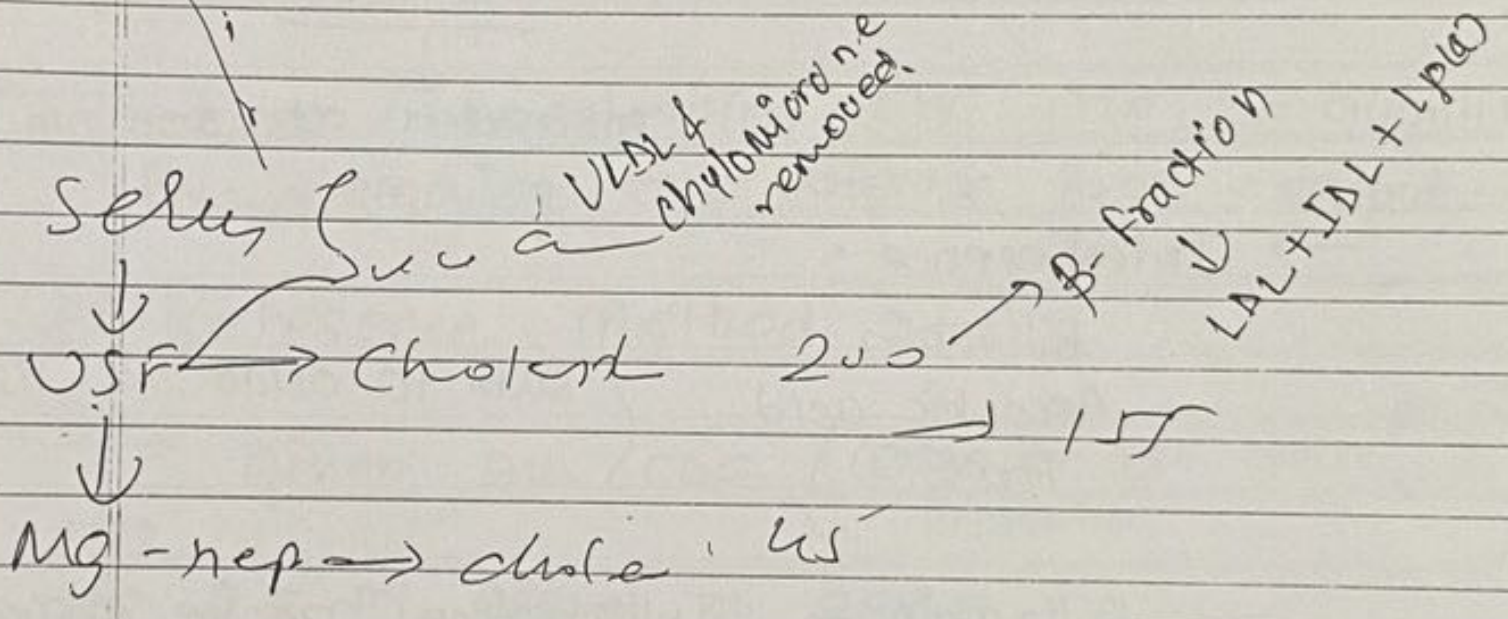 VLDL &
chylomicrone
removed.
Serum
β- fraction
↓
LDL + IDL + Lp(a)
↓
USF → Cholest 200
→ 155
↓
Mg - hep → chole 45